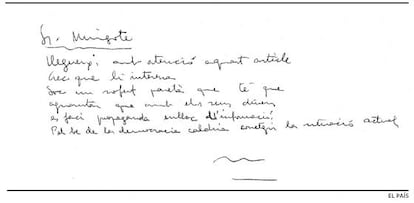 Sr. Mingote
Llegeixi amb atenció aquest article
Crec que li interessa
Soc un sofert pare que té que
aguantar que amb els seus diners
es faci propaganda enlloc d'informació.
Pel bé de la democracia caldria corretgir la situació actual
EL PAÍS